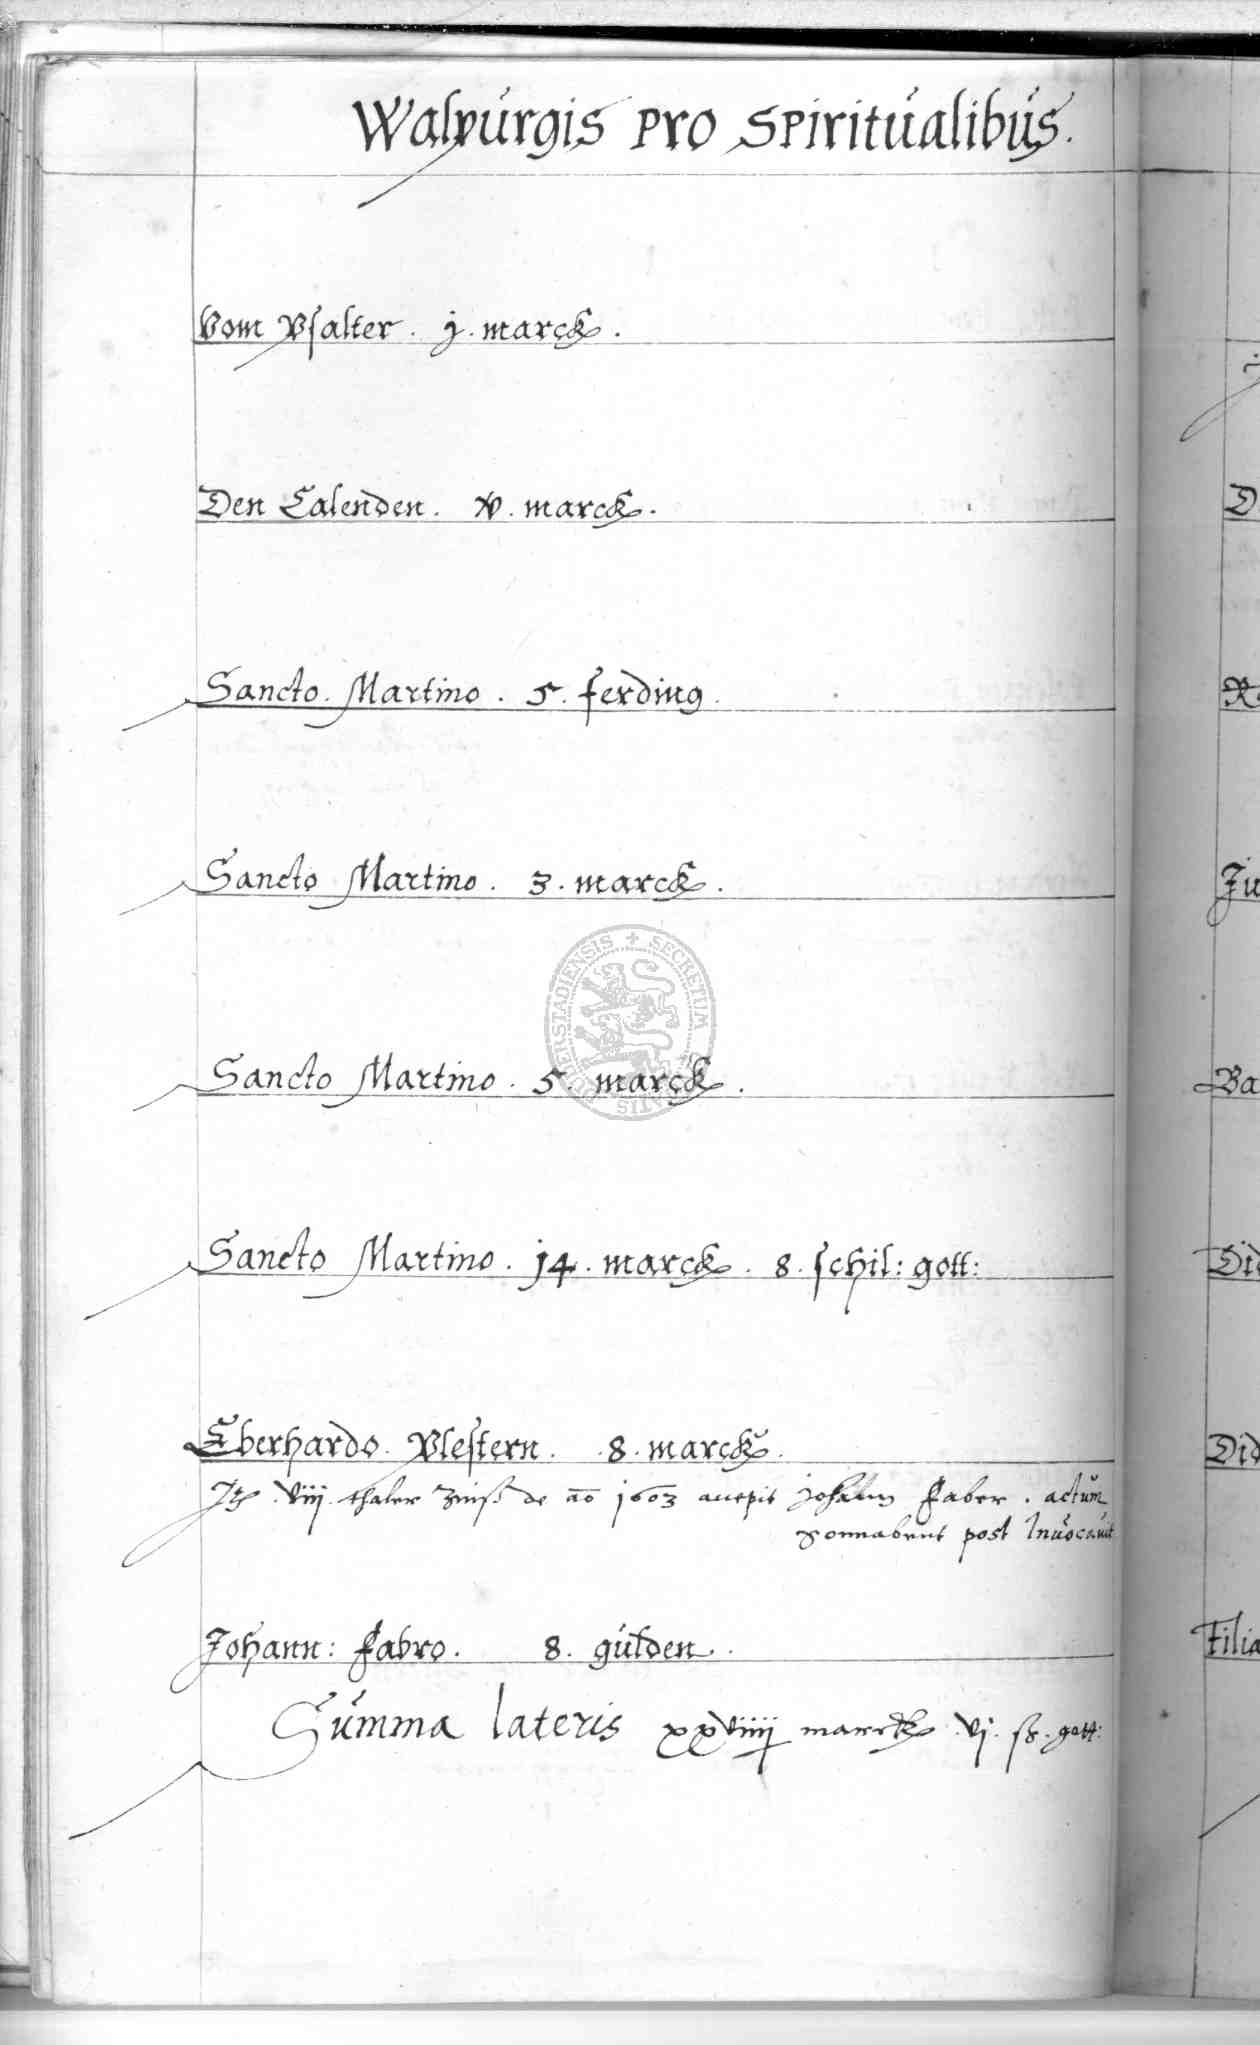 Walpurgis pro spiritualibus.
Vom Psalter. j. marck.
Den Calenden. v. marck.
Sancto. Martino. 5. ferding.
Sancto Martino. 3. marck.
Sancto Martino. 5. marck.
Sancto Martino. j4. marck. 8. schil: gott:
Eberhardo. Plestern. 8. marck.
viij. thaler Zinß de ao 1603 accepit Johann Faber. actum
Sonnabent post Invocavit
Johann: Fabro. 8. gulden.
Summa lateris marck vj. ß. gott:
SECRETUM
D
Ju
Ba
Did
Did
Filia